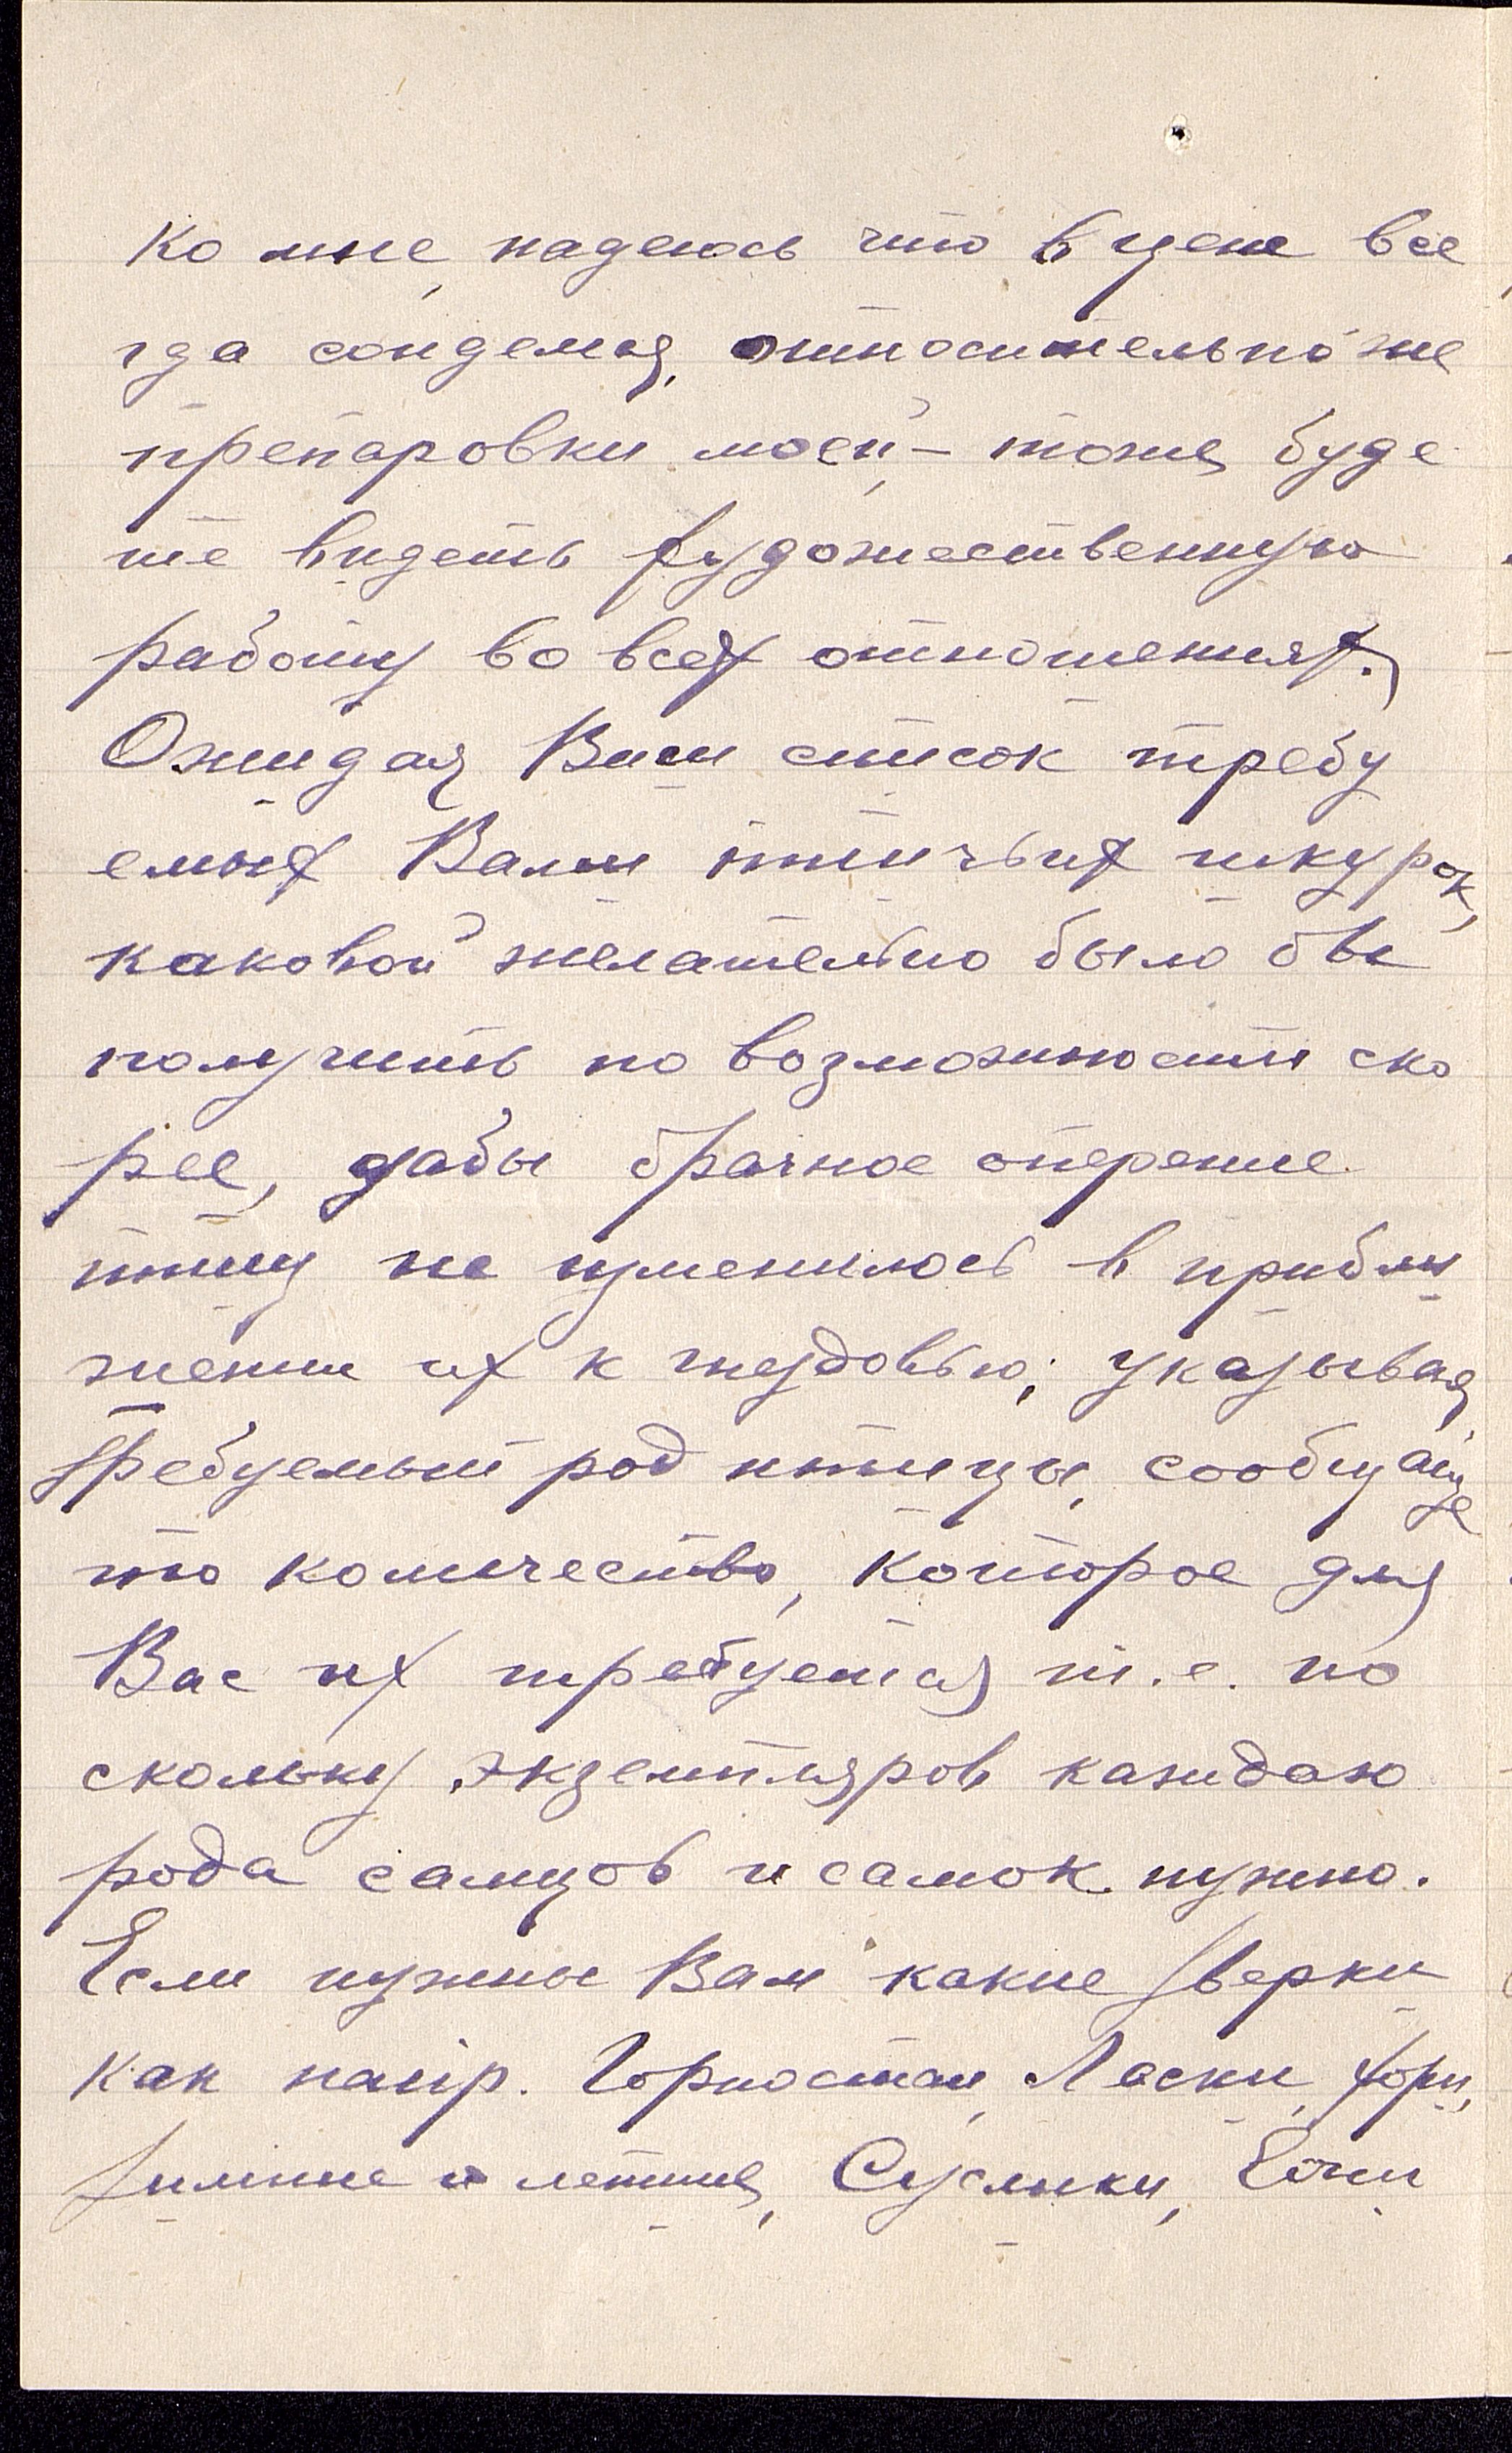 ко мне, надеюсь что в цене все
гда сойдемся, относительно же
препаровки моей, – тоже буде
те видеть художественную
работу во всех отношениях.
Ожидая Ваш список требу
емых Вами птичьих шкурок,
каковой желательно было бы
получить по возможности ско
рее, дабы брачное оперение
птиц не изменилось в прибли
жении их к гнездовью; указывая
требуемый род птицы, сообщайте
то количество, которое для
Вас их требуется т.е. по
скольку экземпляров каждаго
рода самцов и самок нужно.
Если нужны Вам какие зверки
как напр. Горностаи, Ласки, хори,
зимние и летние, Суслики, Ежи